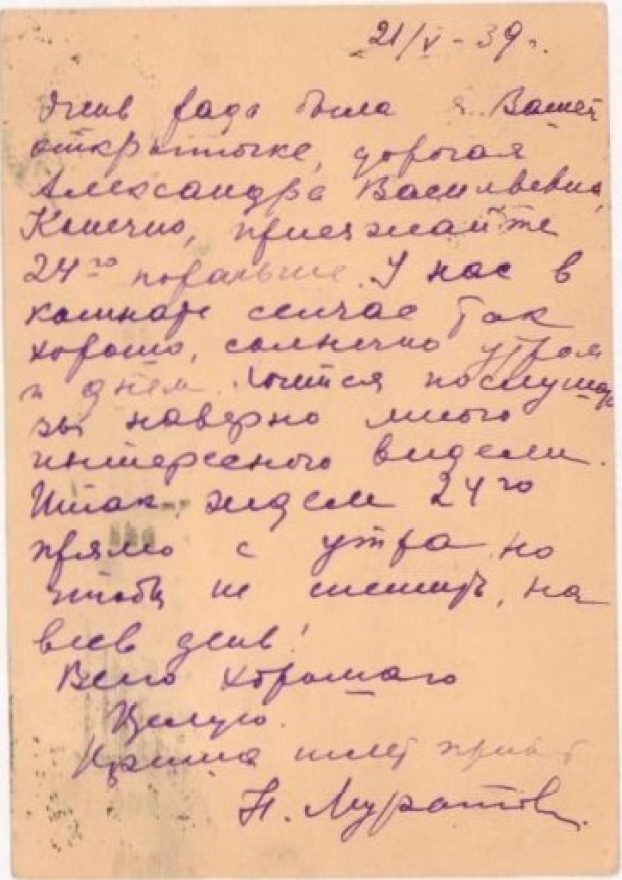 21/V-39 г.
Очень рада была я Вашей
открыточке, дорогая
Александра Васильевна,
Конечно, приезжайте
24го пораньше. У нас в
комнате сейчас так
хорошо, солнечно утром
и днем. Хочется послушать
вы наверно много
интересного видели.
Итак, ждем 24го
прямо с утра, но
чтобы не спешить, на
весь день!
Всего хорошаго
Целую.
шлет привет
Н. Муратова